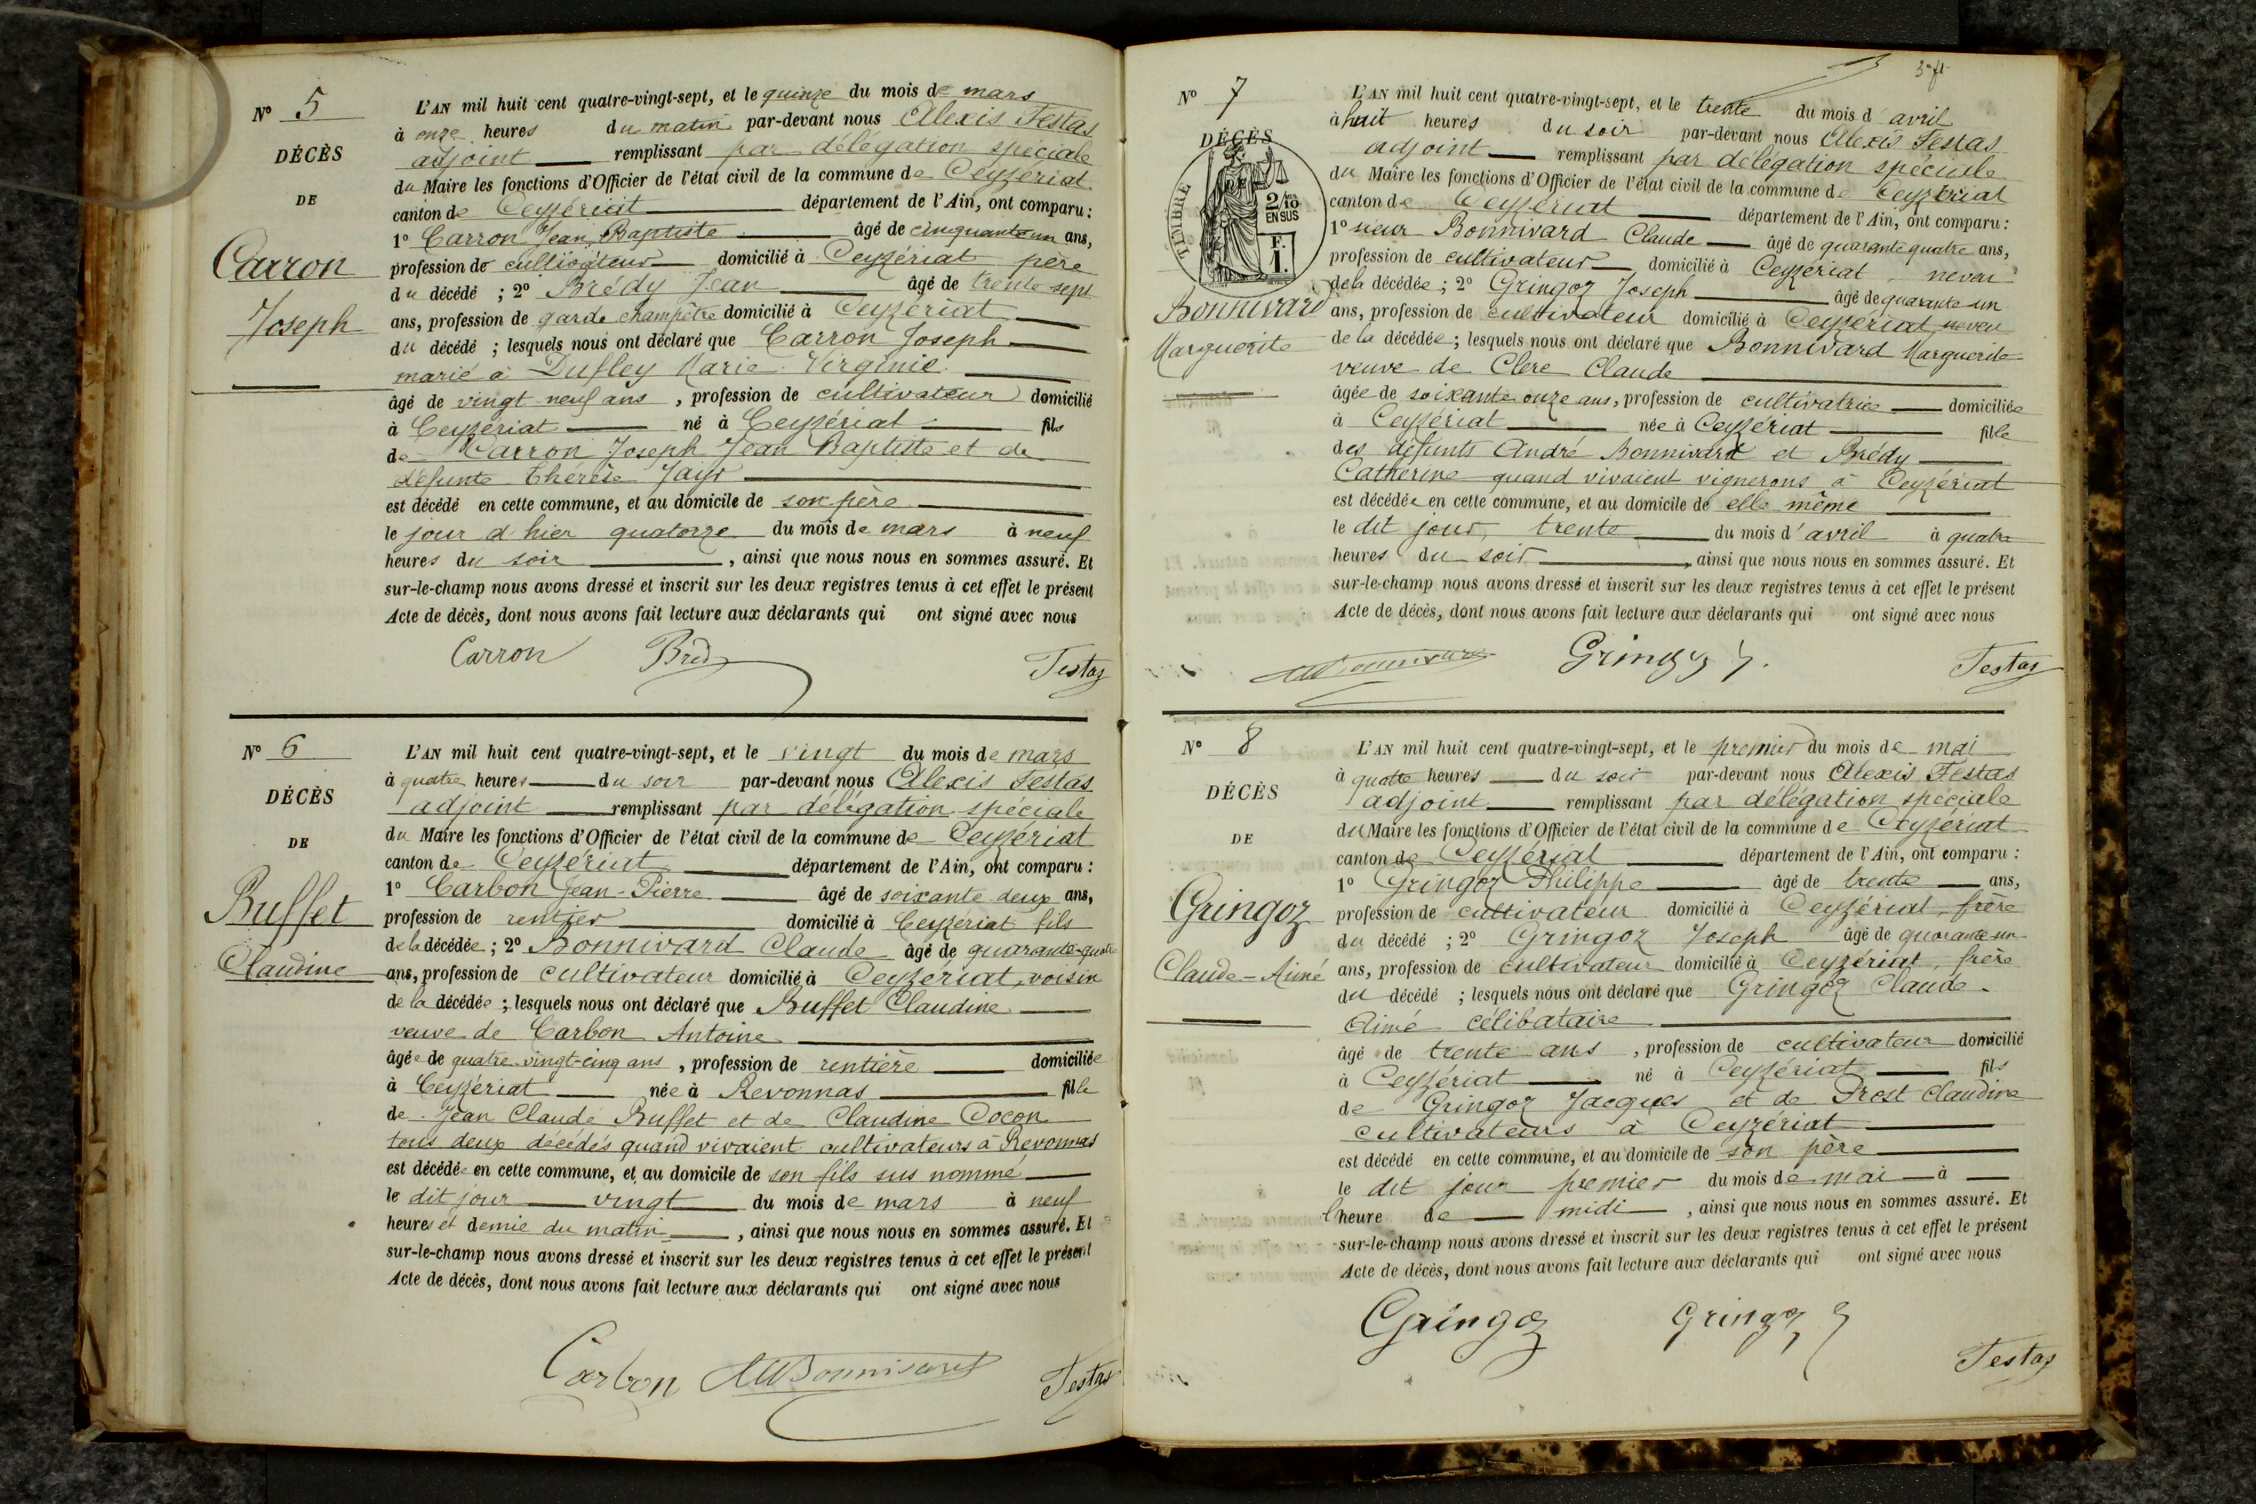 N° 5
DÉCÈS
DE
Carron
Joseph
L'AN mil huit cent quatre-vingt-sept, et le quinze du mois de mars
à onze heures du matin par-devant nous Alexis Festas
adjoint remplissant par délégation spéciale
du Maire les fonctions d'Officier de l'état civil de la commune de Ceyzériat
canton de Ceyzériat département de l'Ain, ont comparu :
1° Carron Jean Baptiste âgé de cinquante un ans,
profession de cultivateur domicilié à Ceyzériat père
du décédé ; 2° Brédy Jean âgé de trente sept
ans, profession de garde champêtre domicilié à Ceyzériat
du décédé ; lesquels nous ont déclaré que Carron Joseph
marié à Dufley Marie Virginie
âgé de vingt neuf ans , profession de cultivateur domicilié
à Ceyzériat né à Ceyzériat fils
de Carron Joseph Jean Baptiste et de
défunte Thérèse Jayr
est décédé en cette commune, et au domicile de son père
le jour d'hier quatorze du mois de mars à neuf
heures du soir , ainsi que nous nous en sommes assuré. Et
sur-le-champ nous avons dressé et inscrit sur les deux registres tenus à cet effet le présent
Acte de décès, dont nous avons fait lecture aux déclarants qui ont signé avec nous
Carron Brédy Festas
N° 6
DÉCÈS
DE
Buffet
Claudine
L'AN mil huit cent quatre-vingt-sept, et le vingt du mois de mars
à quatre heures du soir par-devant nous Alexis Festas
adjoint remplissant par délégation spéciale
du Maire les fonctions d'Officier de l'état civil de la commune de Ceyzériat
canton de Ceyzériat département de l'Ain, ont comparu :
1° Carbon Jean-Pierre âgé de soixante deux ans,
profession de rentier domicilié à Ceyzériat fils
de la décédée ; 2° Bonnivard Claude âgé de quarante-quatre
ans, profession de cultivateur domicilié à Ceyzériat, voisin
de la décédée ; lesquels nous ont déclaré que Buffet Claudine
veuve de Carbon Antoine
âgée de quatre-vingt-cinq ans , profession de rentière domiciliée
à Ceyzériat née à Revonnas fille
de Jean Claude Buffet et de Claudine Cocon
tous deux décédés quand vivaient cultivateurs à Revonnas
est décédée en cette commune, et au domicile de son fils sus nommé
le dit jour vingt du mois de mars à neuf
heures et demie du matin , ainsi que nous nous en sommes assuré. Et
sur-le-champ nous avons dressé et inscrit sur les deux registres tenus à cet effet le présent
Acte de décès, dont nous avons fait lecture aux déclarants qui ont signé avec nous
Carbon Bonnivard Festas
N° 7
DÉCÈS
TIMBRE
2/10
EN SUS
F.
1.
Bonnivard
Marguerite
L'AN mil huit cent quatre-vingt-sept, et le trente du mois d'avril
à huit heures du soir par-devant nous Alexis Festas
adjoint remplissant par délégation spéciale
du Maire les fonctions d'Officier de l'état civil de la commune de Ceyzériat
canton de Ceyzériat département de l'Ain, ont comparu :
1° sieur Bonnivard Claude âgé de quarante quatre ans,
profession de cultivateur domicilié à Ceyzériat neveu
de la décédée ; 2° Gringoz Joseph âgé de quarante un
ans, profession de cultivateur domicilié à Ceyzériat, neveu
de la décédée ; lesquels nous ont déclaré que Bonnivard Marguerite
veuve de Clere Claude
âgée de soixante onze ans, profession de cultivatrice domiciliée
à Ceyzériat née à Ceyzériat fille
des défunts André Bonnivard et Brédy
Catherine quand vivaient vignerons à Ceyzériat
est décédée en cette commune, et au domicile de elle même
le dit jour, trente du mois d'avril à quatre
heures du soir , ainsi que nous nous en sommes assuré. Et
sur-le-champ nous avons dressé et inscrit sur les deux registres tenus à cet effet le présent
Acte de décès, dont nous avons fait lecture aux déclarants qui ont signé avec nous
Bonnivard Gringoz J. Festas
N° 8
DÉCÈS
DE
Gringoz
Claude-Aimé
L'AN mil huit cent quatre-vingt-sept, et le premier du mois de mai
à quatre heures du soir par-devant nous Alexis Festas
adjoint remplissant par délégation spéciale
du Maire les fonctions d'Officier de l'état civil de la commune de Ceyzériat
canton de Ceyzériat département de l'Ain, ont comparu :
1° Gringoz Philippe âgé de trente ans,
profession de cultivateur domicilié à Ceyzériat, frère
du décédé ; 2° Gringoz Joseph âgé de quarante un
ans, profession de cultivateur domicilié à Ceyzériat, frère
du décédé ; lesquels nous ont déclaré que Gringoz Claude-
Aimé célibataire
âgé de trente ans , profession de cultivateur domicilié
à Ceyzériat né à Ceyzériat fils
de Gringoz Jacques et de Prost Claudine
cultivateurs à Ceyzériat
est décédé en cette commune, et au domicile de son père
le dit jour premier du mois de mai à
l'heure de midi , ainsi que nous nous en sommes assuré. Et
sur-le-champ nous avons dressé et inscrit sur les deux registres tenus à cet effet le présent
Acte de décès, dont nous avons fait lecture aux déclarants qui ont signé avec nous
Gringoz Gringoz J Festas